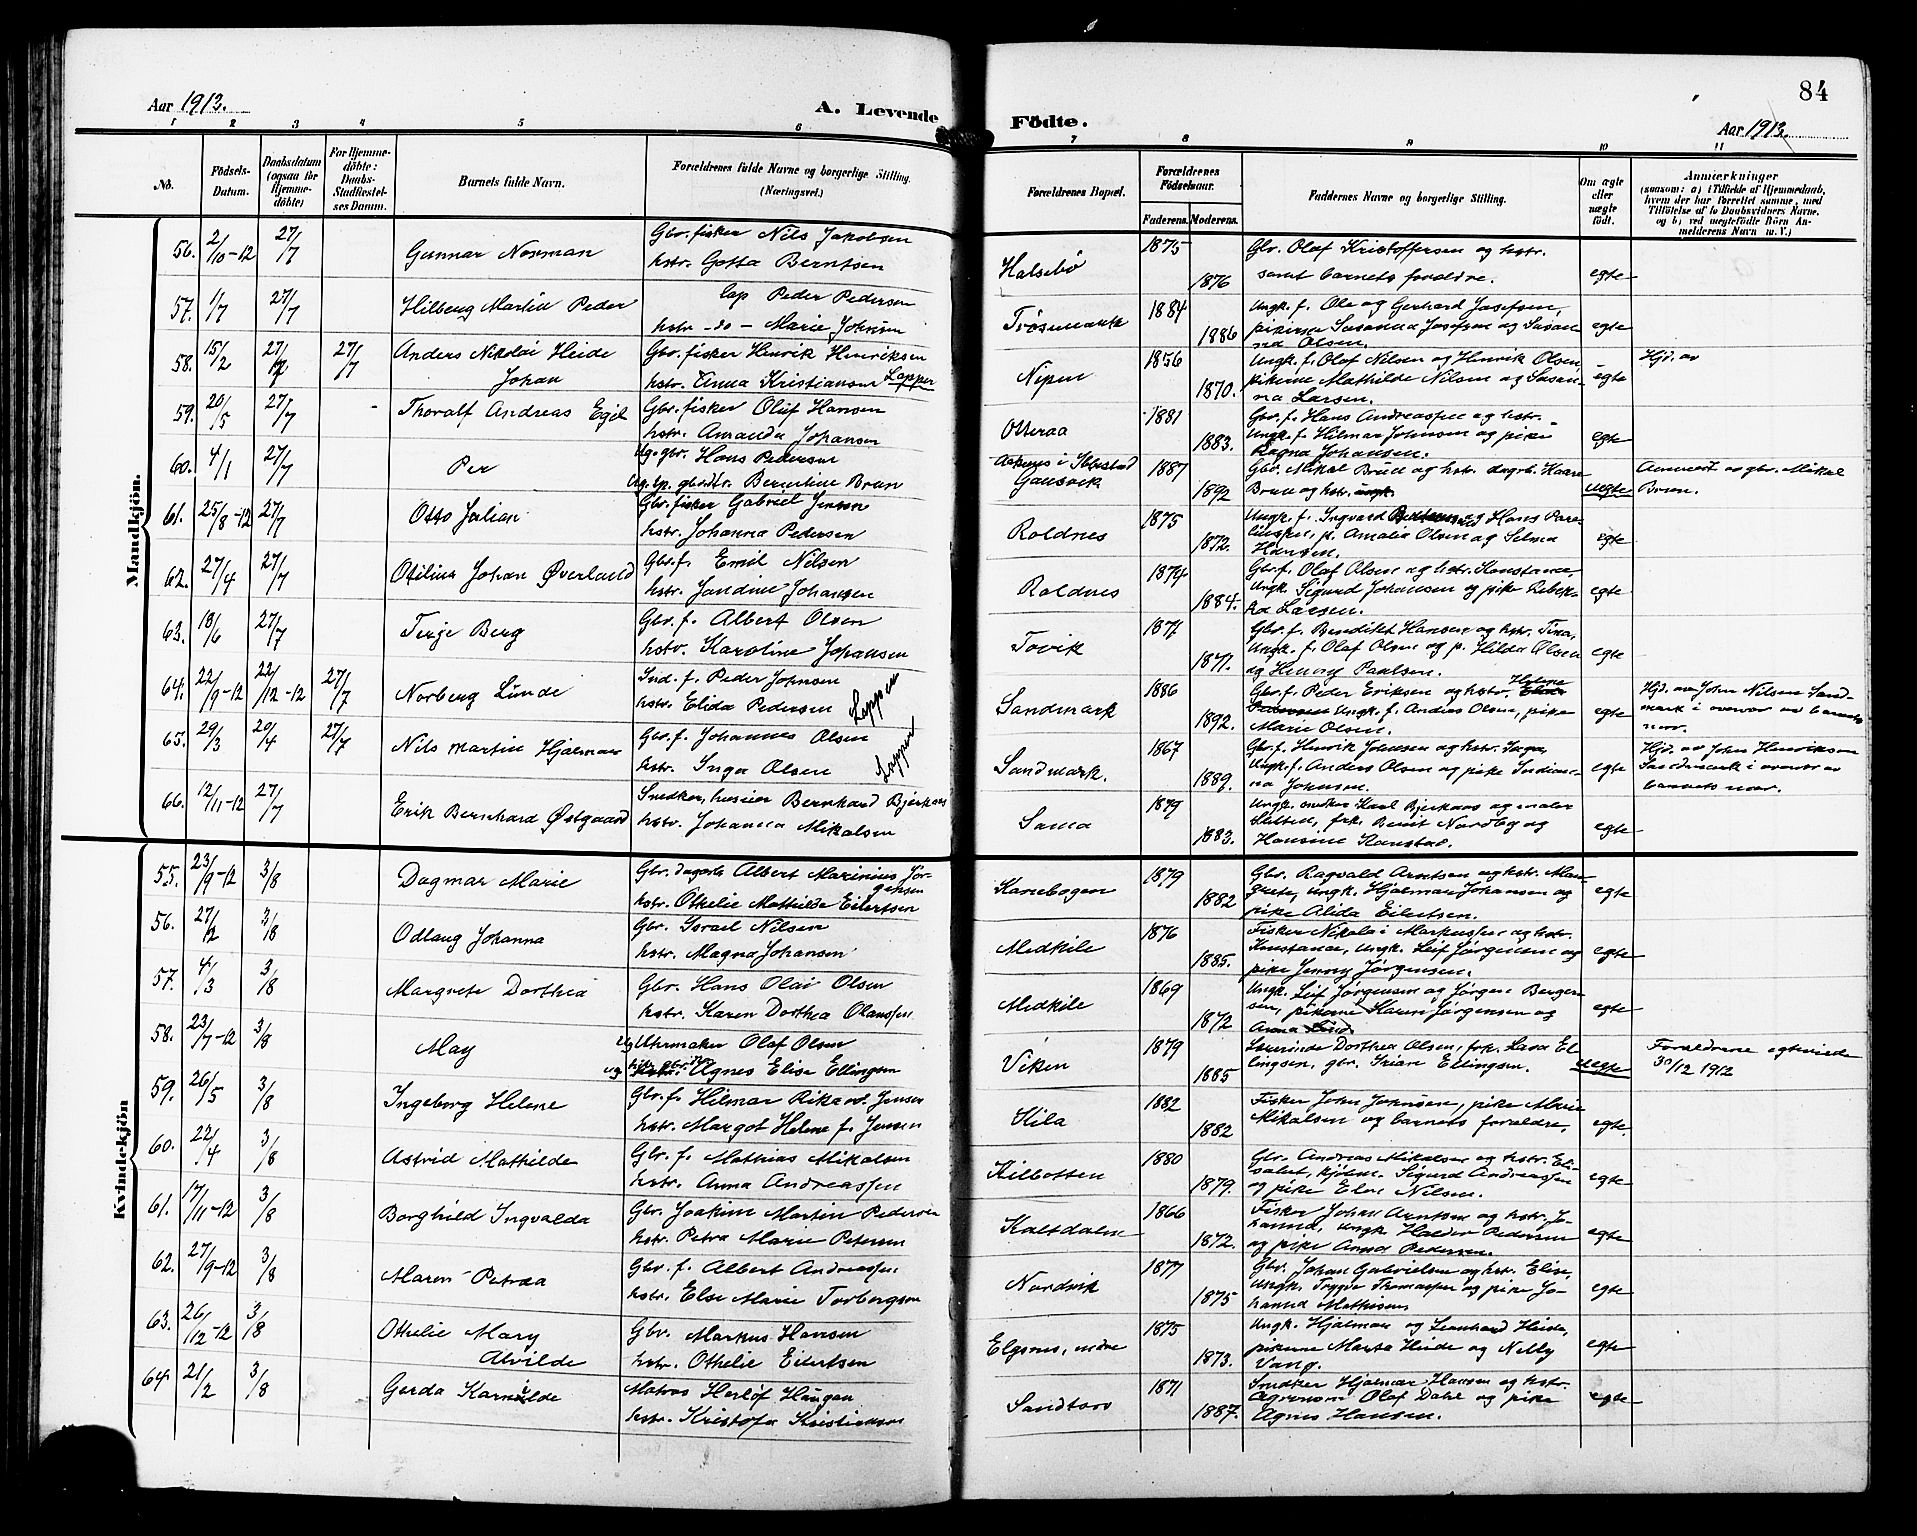 84
Aar 1913.
A. Levende
Födte.
Aar 1913.
1 2 3 4 5 6 7 8 9 10 11
No.
Födsels-
Datum.
Daabsdatum
(ogsaa for
Hjemme-
döbte)
For Hjemme-
döbte:
Daabs-
Stadfæstel-
ses Datum.
Barnets fulde Navn.
Forældrenes fulde Navne og borgerlige Stilling.
(Næringsvei.)
Forældrenes Bopæl.
Forældrenes
Födselsaar.
Faderens. Moderens.
Faddernes Navne og borgerlige Stilling.
Om ægte
eller
uægte
födt.
Anmærkninger
(saasom: a) i Tilfælde af Hjemmedaab,
hvem der har forrettet samme, med
Tilföielse af to Daabsvidners Navne,
og b) ved uegtefödte Börn An-
melderens Navn m. V.)
Mandkjön.
56. 2/10-12 27/7 Gunnar Norman
Gbr. fisker Nils Jakobsen
hstr. Gotta Berntsen
Halsebö 1875 1876
Gbr. Olaf Kristoffersen og hstr.
samt barnets foreldre. egte
57. 1/7 27/7 Hilberg Martin Peder
Lap Peder Pedersen
hstr. -do- Marie Johnsen
Trösemark 1884 1886
Ungk. f. Ole og Gerhard Josefsen,
pikerne Susanna Josefsen og Susan-
na Olsen. egte
58. 15/2 27/7 27/7 Anders Nikolai Heide
Johan
Gbr. fisker Henrik Henriksen
hstr. Anna Kristiansen Lapper
Nipen 1856 1870.
Ungk. f. Olaf Nilsen og Henrik Olsen,
pikerne Mathilde Nilsen og Susan-
na Larsen. egte
Hjd. av
59. 20/5 27/7 Thoralf Andreas Egil
Gbr. fisker Oluf Hansen
hstr. Amanda Johansen
Otteraa 1881 1883.
Gbr. f. Hans Andreassen og hstr.
Ungk. f. Hilmar Johnsen og pike
Ragna Johansen. egte
60. 4/1 27/7 Per
Ug. gbr. Hans Pedersen
Ug. tp. gbrdtr. Berntine Brun
Aakenes i Ibbestad
Gausvik 1887 1892
Gbr. Mikal Brun og hstr. dagsb. Haare
Brun og hstr. uegte
Anmeldt av gbr. Mikal
Brun.
61. 25/8-12 27/7 Otto Julian
Gbr. fisker Gabriel Jensen
hstr. Johanna Pedersen
Roldnes 1875 1872.
Ungk. f. Ingvard og Hans Pare-
liussen, p. Amalia Olsen og Selma
Hansen. egte
62. 27/4 27/7 Otilius Johan Överland
Gbr. f. Emil Nilsen
hstr. Jandine Johansen
Roldnes 1874 1884.
Gbr. f. Olaf Olsen og hstr. Konstance,
Ungk. Sigurd Johansen og pike Rebek-
ka Larsen. egte
63. 18/6 27/7 Terje Berg
Gbr. f. Albert Olsen
hstr. Karoline Johansen
Tovik 1877 1871.
Gbr. f. Benedikt Hansen og hstr. Tina,
Ungk. f. Olaf Olsen og p. Hilda Olsen
og Henny Paulsen. egte
64. 22/9-12 22/12-12 27/7 Norberg Lunde
Ind. f. Peder Johnsen
hstr. Elida Pedersen Lapper
Sandmark 1886 1892.
Gbr. f. Peder Eriksen og hstr. Helene
Ungk. f. Anders Olsen, pike
Marie Olsen. egte
Hjd. av John Nilsen Sand-
mark i overvær av barnets
mor.
65. 29/3 20/4 27/7 Nils Martin Hjalmar
Gbr. f. Johannes Olsen
hstr. Inga Olsen Lapper
Sandmark. 1867 1889.
Gbr. f. Henrik Johnsen og hstr. Inga,
Ungk. f. Anders Olsen og pike Indian-
na Johnsen. egte
Hjd. av John Henriksen
Sandmark i overvær av
barnets mor.
66. 12/11-12 27/7 Erik Bernhard Östgaard
Snedker, huseier Bernhard Bjerkaas
hstr. Johanna Mikalsen
Sama 1879 1883.
Ungk. snedker Karl Bjerkaas og maler
frk. Berit Nordby og
Hansine Hanstad. egte
Kvindekjön
55. 23/9-12 3/8 Dagmar Marie
Gbr. dagarb. Albert Marinius Jör-
gensen
hstr. Othelie Mathilde Eilertsen
Kanebogen 1879 1882
Gbr. Ragvald Arntsen og hstr. Mar-
grete, ungk. Hjalmar Johansen og
pike Alida Eilertsen. egte
56. 27/2 3/8 Odlaug Johanna
Gbr. Israel Nilsen
hstr. Magna Johansen
Medkile 1876 1885.
Fisker Nikolai Markussen og hstr.
Konstance, ungk. Leif Jörgensen og
pike Jenny Jörgensen. egte
57. 4/3 3/8 Margrete Dorthea
Gbr. Hans Olai Olsen
hstr. Karen Dorthea Olaussen
Medkile 1869 1872
Ungk. Leif Jörgensen og Jörgen Berger-
sen, pikerne Karen Jörgensen og
Anna Lind egte
58. 23/7-12 3/8 May
Ug Uhrmaker Olaf Olsen
ug Agnes Elise Ellingsen
Viken 1879 1885
Dorthea Olsen, frk. Lava El-
lingsen, gbr. Ellingsen. uegte
Foreldrene egteviede
30/12 1912
59. 26/5 3/8 Ingeborg Helene
Gbr. f. Hilmar Rikard Jensen
hstr. Margot Helene f. Jensen
Kila 1882 1882
Fisker John Johnsen, pike Marie
Mikalsen og barnets foreldre, egte.
60. 22/4 3/8 Astrid Mathilde
Gbr. f. Mathias Mikalsen
hstr. Anna Andreassen
Kilbotten 1880 1879.
Gbr. Andreas Mikalsen og hstr. Eli-
sabet, kjöbm. Sigurd Andreassen
og pike Else Nilsen. egte
61. 17/11-12 3/8 Borghild Ingvalda
Gbr. Joakim Martin Pedersen
hstr. Petra Marie Petersen
Kaltdalen 1866 1872.
Fisker Johan Arntsen og hstr. Jo-
hanna, ungk. Haldor Pedersen
og pike Anna Pedersen. egte
62. 27/9-12 3/8 Maren Petræa
Gbr. f. Albert Andreassen
hstr. Else Marie Torbergsen
Nordvik 1877 1875
Gbr. Johan Gabrielsen og hstr. Elise,
Ungk. Trygve Thomassen og pike Jo-
hanna Mathisen egte
63. 26/12-12 3/8 Othelie Mary
Alvilde
Gbr. Markus Hansen
hstr. Othelie Eilertsen
Elgsnes, indre 1875 1873.
Ungk. Hjalmar og Leonhard Heide,
pikerne Marta Heide og Nelly
Vang. egte
64 21/2 3/8 Gerda Karnilde
Matros Herlöf Haugan
hstr. Kristofa Kristiansen
Sandtorv 1871 1887.
Snedker Hjalmar Hansen og hstr.
Agronom Olaf Dahl og pike
Agnes Hansen. egte